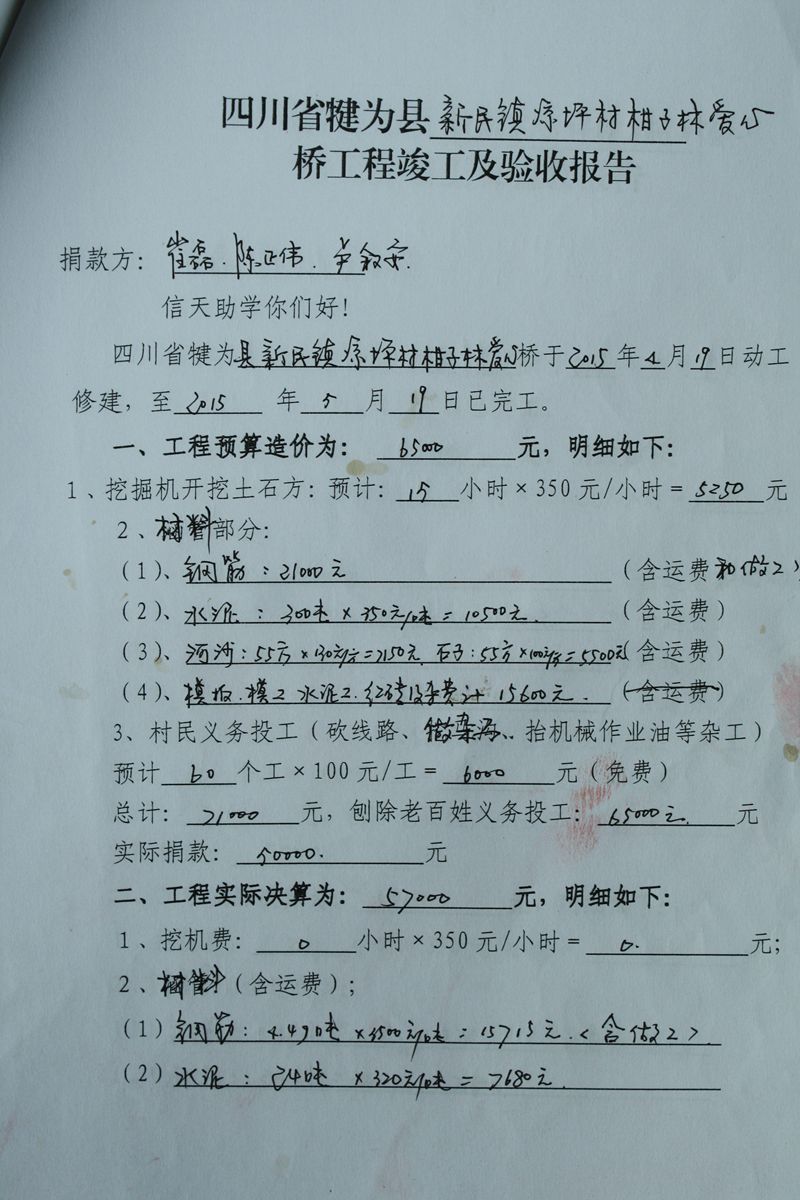 四川省犍为县新民镇凉坪村柑子林爱心
桥工程竣工及验收报告
捐款方：崔磊．陈正伟．卢叙安．
信天助学你们好！
四川省犍为县新民镇凉坪村柑子林爱心桥于2015年4月19日动工
修建，至2015年5月19日已完工。
一、工程预算造价为：65000元，明细如下：
1、挖掘机开挖土石方：预计：15小时×350元/小时＝5250元
2、材料部分：
（1）、钢筋：21000元（含运费和做工）
（2）、水泥：30吨×350元/吨＝10500元．（含运费）
（3）、河沙：55方×130元/方＝7150元．石子：55方×100元/方＝5500元（含运费）
（4）、模板．模工 水泥工．红砖及杂费计 15600元．（含运费）
3、村民义务投工（砍线路、做杂活、抬机械作业油等杂工）
预计60个工×100元/工＝6000元（免费）
总计：71000元，刨除老百姓义务投工：65000元．元
实际捐款：50000．元
二、工程实际决算为：57000元，明细如下：
1、挖机费：0小时×350元/小时＝0．元；
2、材料（含运费）；
（1）钢筋：4.49吨×3500元/吨＝15715元．（含做工）．
（2）水泥：24吨×320元/吨＝7680元．